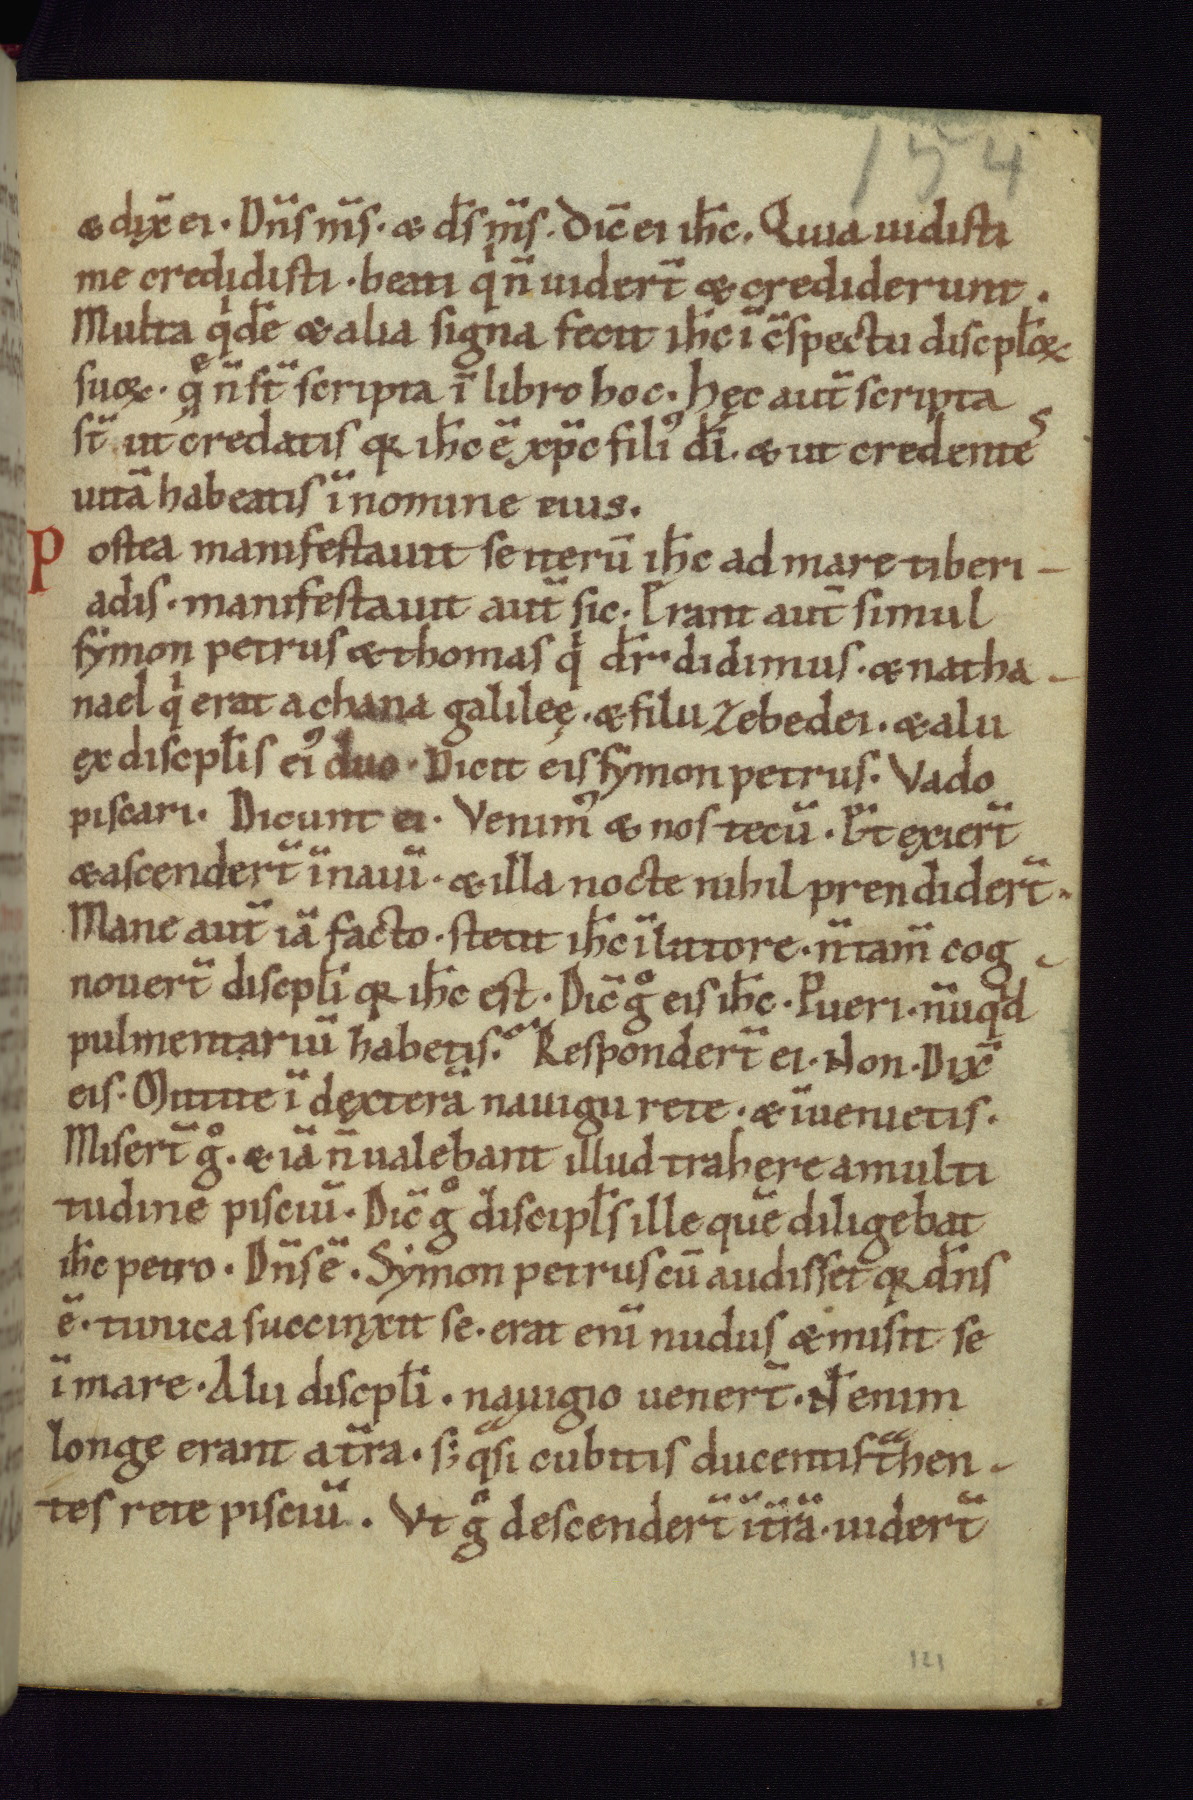 154
& dix̄ ei. Dn̄s m̄s. & d̄s m̄s. Dic̄ ei ih̄c. Quia uidisti
me credidisti. beati qi n̄ uider̄t & crediderunt.
Multa qide̅ & alia signa fecit ih̄c ī c̄spectu discipl̄oꝝ
suoꝝ. qe n̄ st̄ scripta ī libro hoc. hęc aut̄ scripta
st̄ ut credatis qꝛ ih̄c ē xp̄c filiꝰ dī. & ut credentes
uitā habeatis ī nomine eius.
Postea manifestauit se iterū ih̄c ad mare tiberi-
adis. manifestauit aut̄ sic. Erant aut̄ simul
symon petrus & thomas qi dr̄ didimus. & natha-
nael qi erat a chana galileę. & filii zebedei. & alii
ex discpl̄is eiꝰ duo. Dicit eis symon petrus. Vado
piscari. Dicunt ei. Venimꝰ & nos tecū. Et exier̄t
& ascender̄t ī nauī. & illa nocte nihil prendider̄t.
Mane aut̄ iā facto. stetit ih̄c ī littore. n̄ tam̄ cog-
nouer̄t discpl̄i qꝛ ih̄c est. Dic̄ go eis ih̄c. Pueri. nūqid
pulmentariū habetis? Responder̄t ei. Non. Dix̄
eis. Mittite ī dexterā nauigii rete. & īuenietis.
Miser̄t go. & iā n̄ ualebant illud trahere a multi
tudine pisciū. Dic̄ go discipl̄s ille quē diligebat
ih̄c petro. Dn̄s ē. Symon petrus cū audisset qꝛ dn̄s
ē. tunica succinxit se. erat enī nudus & misit se
ī mare. Alii discpl̄i. nauigio uener̄t. N̄ enim
longe erant a tr̄a. sꝫ qasi cubitis ducentis trahen-
tes rete pisciū. Vt go descender̄t ī tr̄ā. uider̄t
121